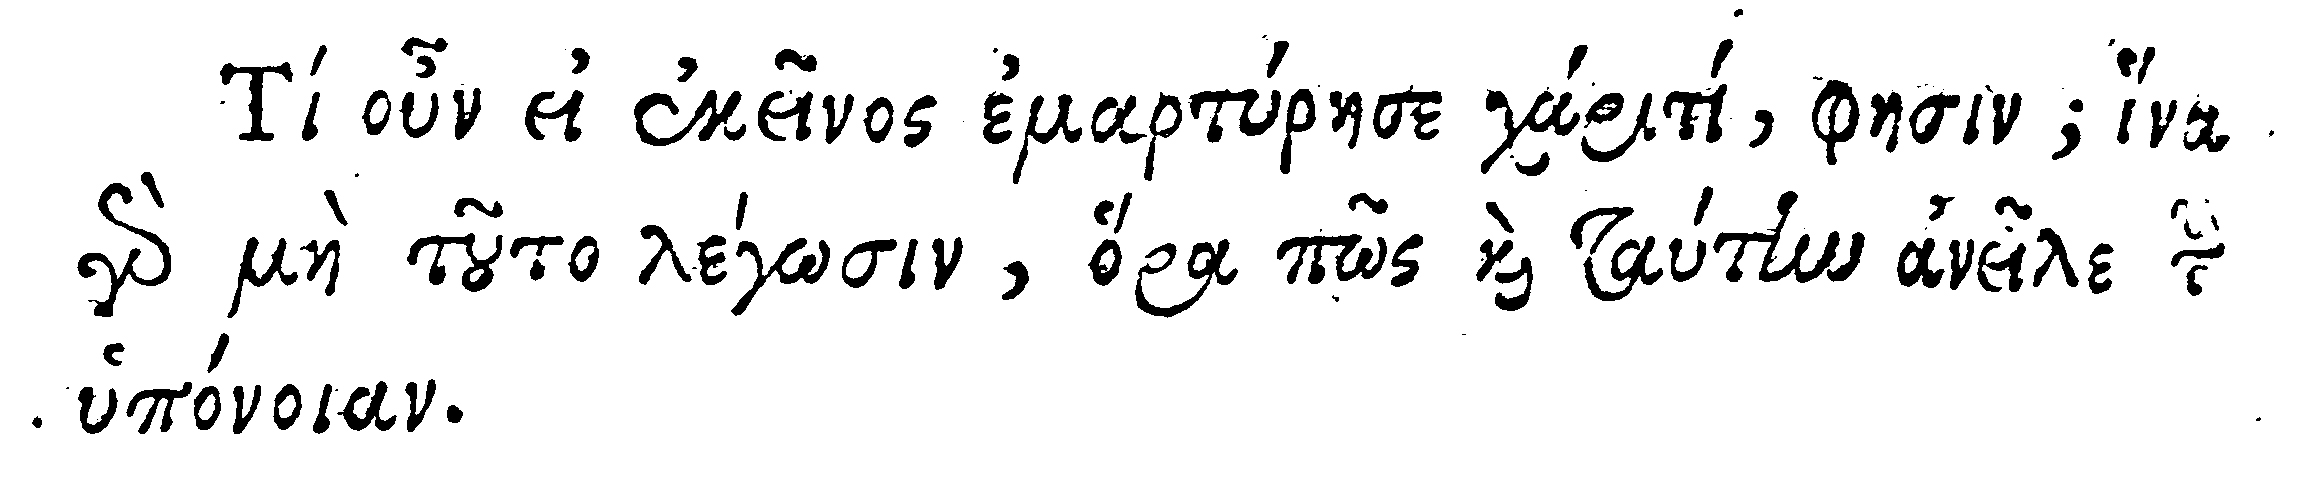 Τί οὖν εἰ ἐκεῖνος ἐμαρτύρησε χάριτί, φησιν; ἵνα
γὰρ μὴ τοῦτο λέγωσιν, ὅρα πῶς καὶ ταύτην ἀνεῖλε τὴν
ὑπόνοιαν.